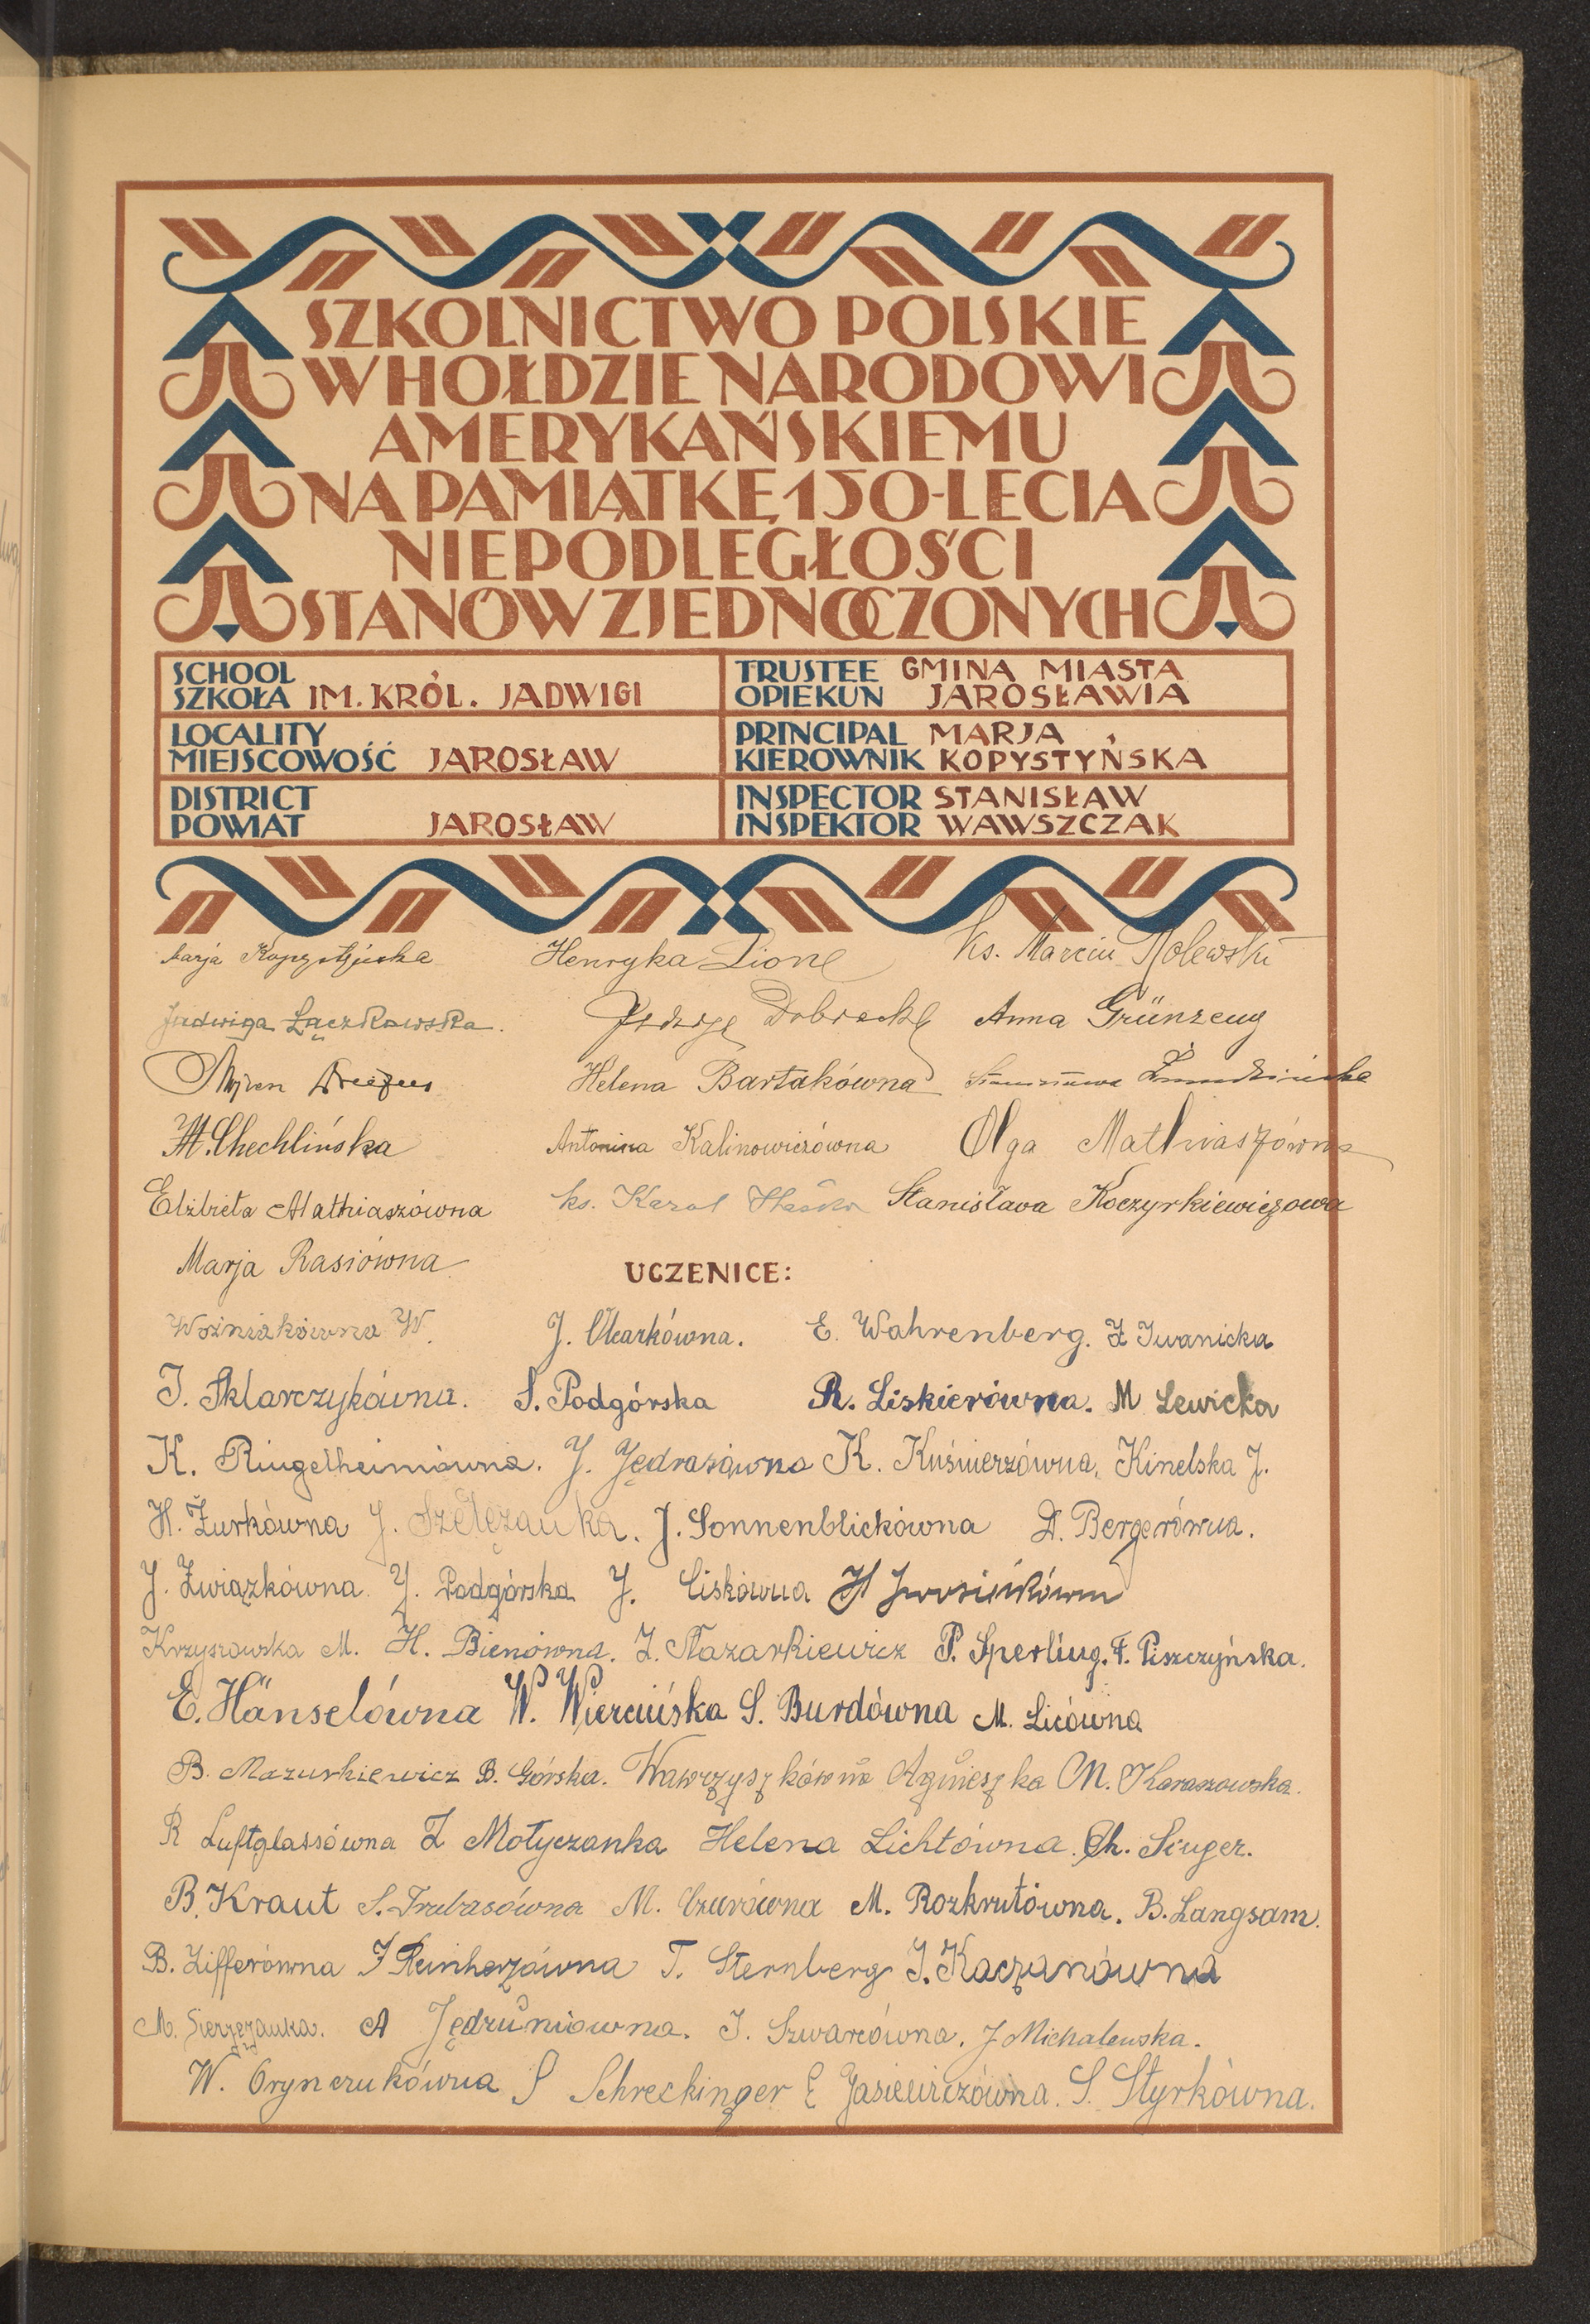 SZKOLNICTWO POLSKIE
W HOŁDZIE NARODOWI
AMERYKAŃSKIEMU
NA PAMIĄTKĘ 150-LECIA
NIEPODLEGŁOŚCI
STANÓW ZJEDNOCZONYCH
SCHOOL
SZKOŁA IM. KRÓL. JADWIGI
TRUSTEE GMINA MIASTA
OPIEKUN JAROSŁAWIA
LOCALITY
MIEJSCOWOŚĆ JAROSŁAW
PRINCIPAL MARJA
KIEROWNIK KOPYSTYŃSKA
DISTRICT
POWIAT JAROSŁAW
INSPECTOR STANISŁAW
INSPEKTOR WAWSZCZAK
Marja Kopystyńska Henryka Lione ks. Marcin
Jadwiga Łączkowska. Anna Grünzeug
Helena Bartakówna
M. Chechlińska Antonina Kalinowiczówna Olga Mathiaszówna
Elżbieta Mathiaszówna ks. Karol Stanisława Koczyrkiewiczowa
Marja Rasiówna
UCZENICE:
Woźniakówna W. J. E. Wahrenberg. Z Iwanicka
J. Sklarczykówna. S. Podgórska R. Liskierówna. M Lewicka
K. Ringelheimówna. J. Jędrasówna K. Kuśnierzówna, Kinelska J.
H. Żurkówna J. J. Sonnenblickówna D. Bergerówna.
J. Związkówna J. Podgórska J. Ciskówna H
Krzyszowska M. H. Bieniówna. Z. Nazarkiewicz P. Sperling. F. Piszczyńska.
E. Hänselówna W. Wiercińska S. Burdówna M. Licówna
B. Mazurkiewicz B. Górska. Wawrzyszkówna Agnieszka M. Karaszowska.
R Luftglassówna Z Motyczanka Helena Lichtówna. Ch. Singer.
B. Kraut S. Trubasówna M. M. Rozkrutówna. B. Langsam.
B. Zifferówna J Reinherzówna T. Sternberg J. Kaczanówna
M. Sierżężanka. A Jędruniówna. J. Szwarcówna. J Michalewska.
W. Orynczukówna S Schreckinger E Jasiewiczówna. S. Styrkówna.